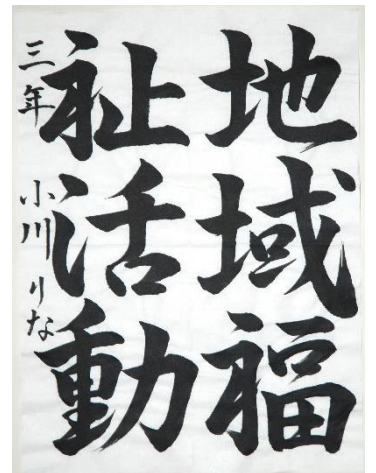 地域福
祉活動
三年 小川りな